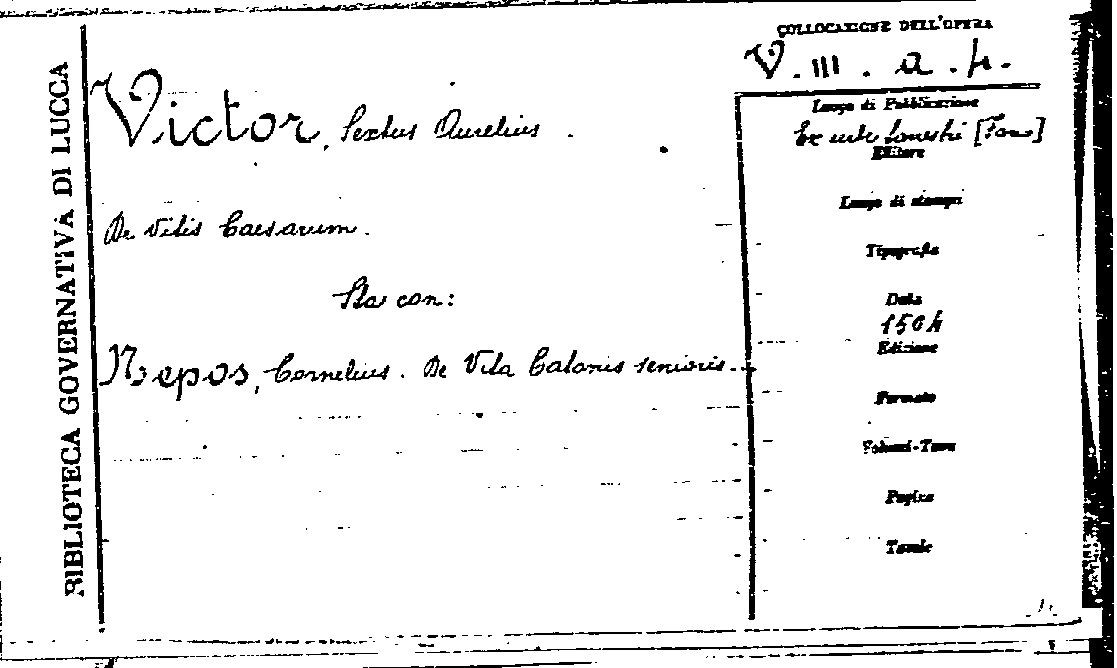 BIBLIOTECA GOVERNATIVA DI LUCCA
COLLOCAZIONE DELL'OPERA
V. III. a. 4.
Victor, Sextus Aurelius.
Luogo di Pubblicazione
[Fano]
Editore
De Vitis Caesarum.
Luogo di stampa
Tipografia
Sta con:
Data
1504
Edizione
Nepos, Cornelius. De Vita Catonis senioris...
Formato
Volumi-Tomi
Pagine
Tavole